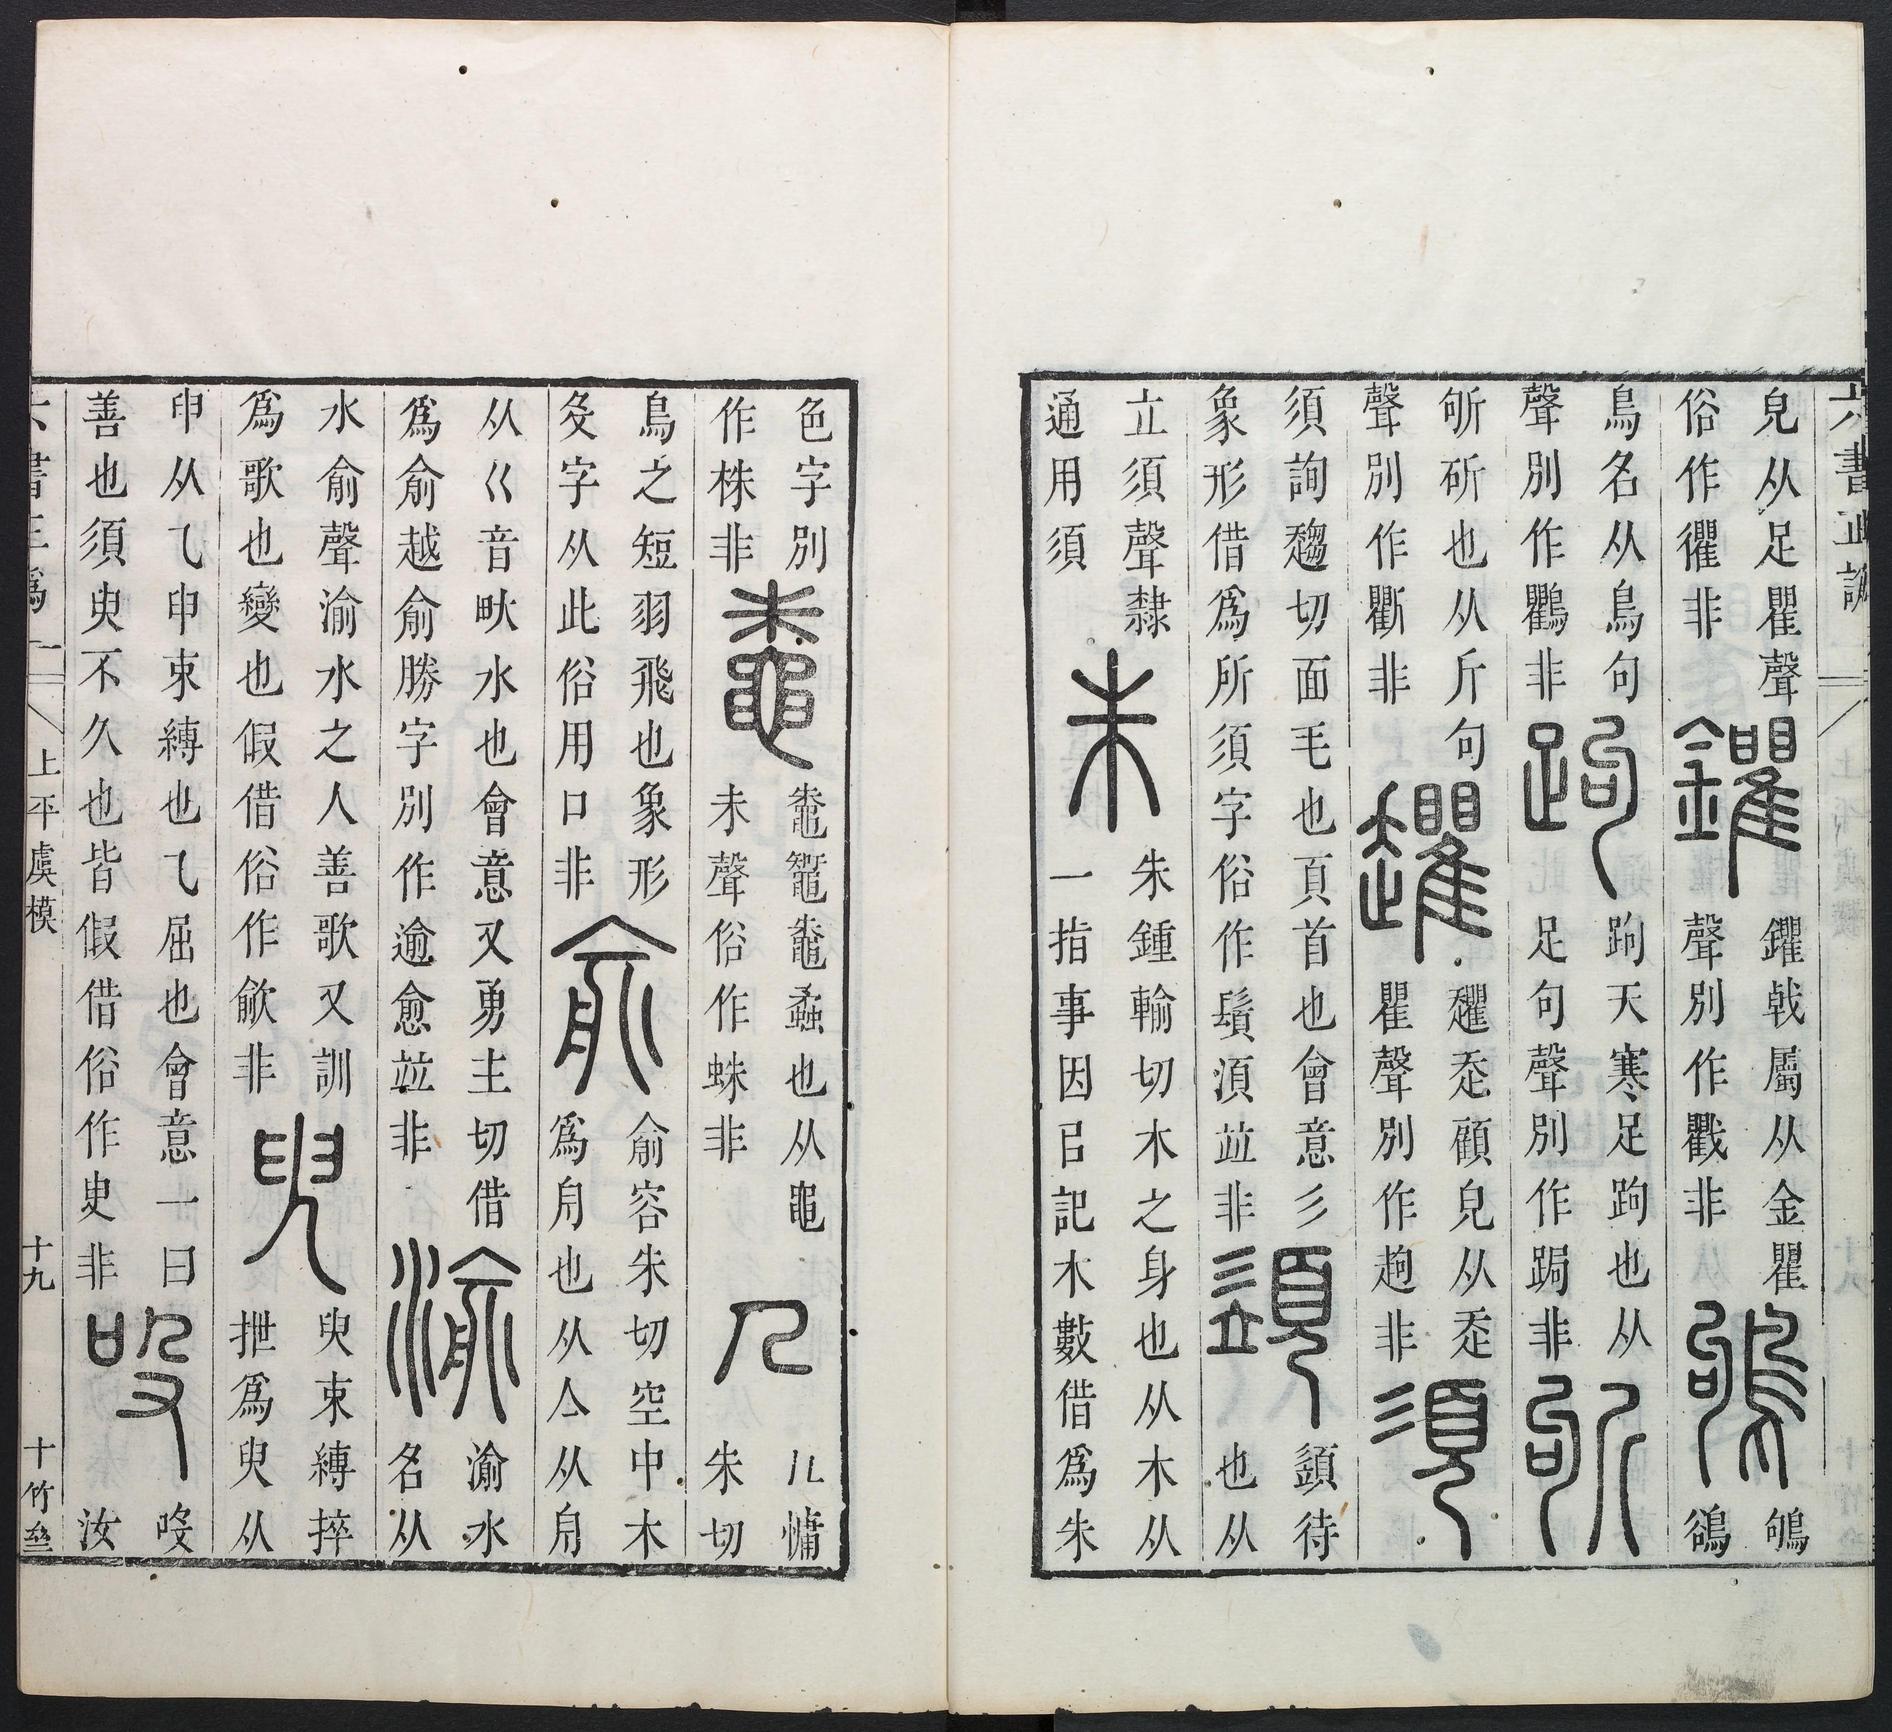 六書正譌
皃从足瞿聲
俗作忂非
鑺
鑺戟屬从金瞿
聲別作戵非
鴝
鴝
鵒
鳥名从鳥句
聲別作鸜非
跔
跔天寒足跔也从
足句聲別作跼非
斪
斪斫也从斤句
聲別作非
走顧皃从走
瞿聲別作非
須
須詢趨切面毛也頁首也會意彡
象形借爲所須字俗作鬚湏竝非
䇓
䇓待
也从
立須聲隸
通用須
朱
朱鍾輸切木之身也从木从
一指事因㠯記木數借爲朱
色字別
作株非
鼄
鼄鼅鼄蝥也从黽
朱聲俗作蛛非
𠘧
𠘧慵
朱切
鳥之短羽飛也象形
殳字从此俗用口非
俞
俞容朱切空中木
爲舟也从亼从舟
从巜音畎水也會意又勇主切借
爲俞越俞勝字別作逾愈竝非
渝
渝水
名从
水俞聲渝水之人善歌又訓
爲歌也變也假借俗作歈非
臾
臾束縛捽
抴爲臾从
申从乁申束縛也乁屈也會意一曰
善也須臾不久也皆假借俗作史非
汝
六書正譌
上平虞模
十九
十竹